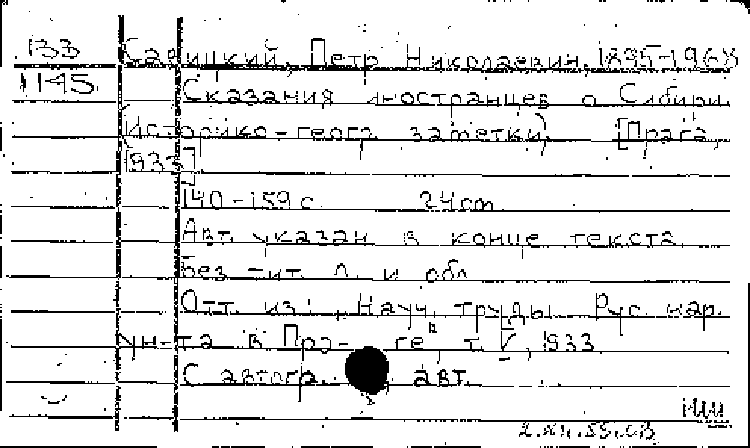 133
1145
Савицкий, Петр Николаевич, 1895-1968
Сказания иностранцев о Сибири.
(Историко-геогр. заметки). [Прага,
1933]
140-159 с. 24 cm
Авт. указан в конце текста
Без тит. л. и обл.
Отт. из: "Науч. труды Рус. нар.
ун-та в Пра- ге", т. V, 1933
С автогр. авт.